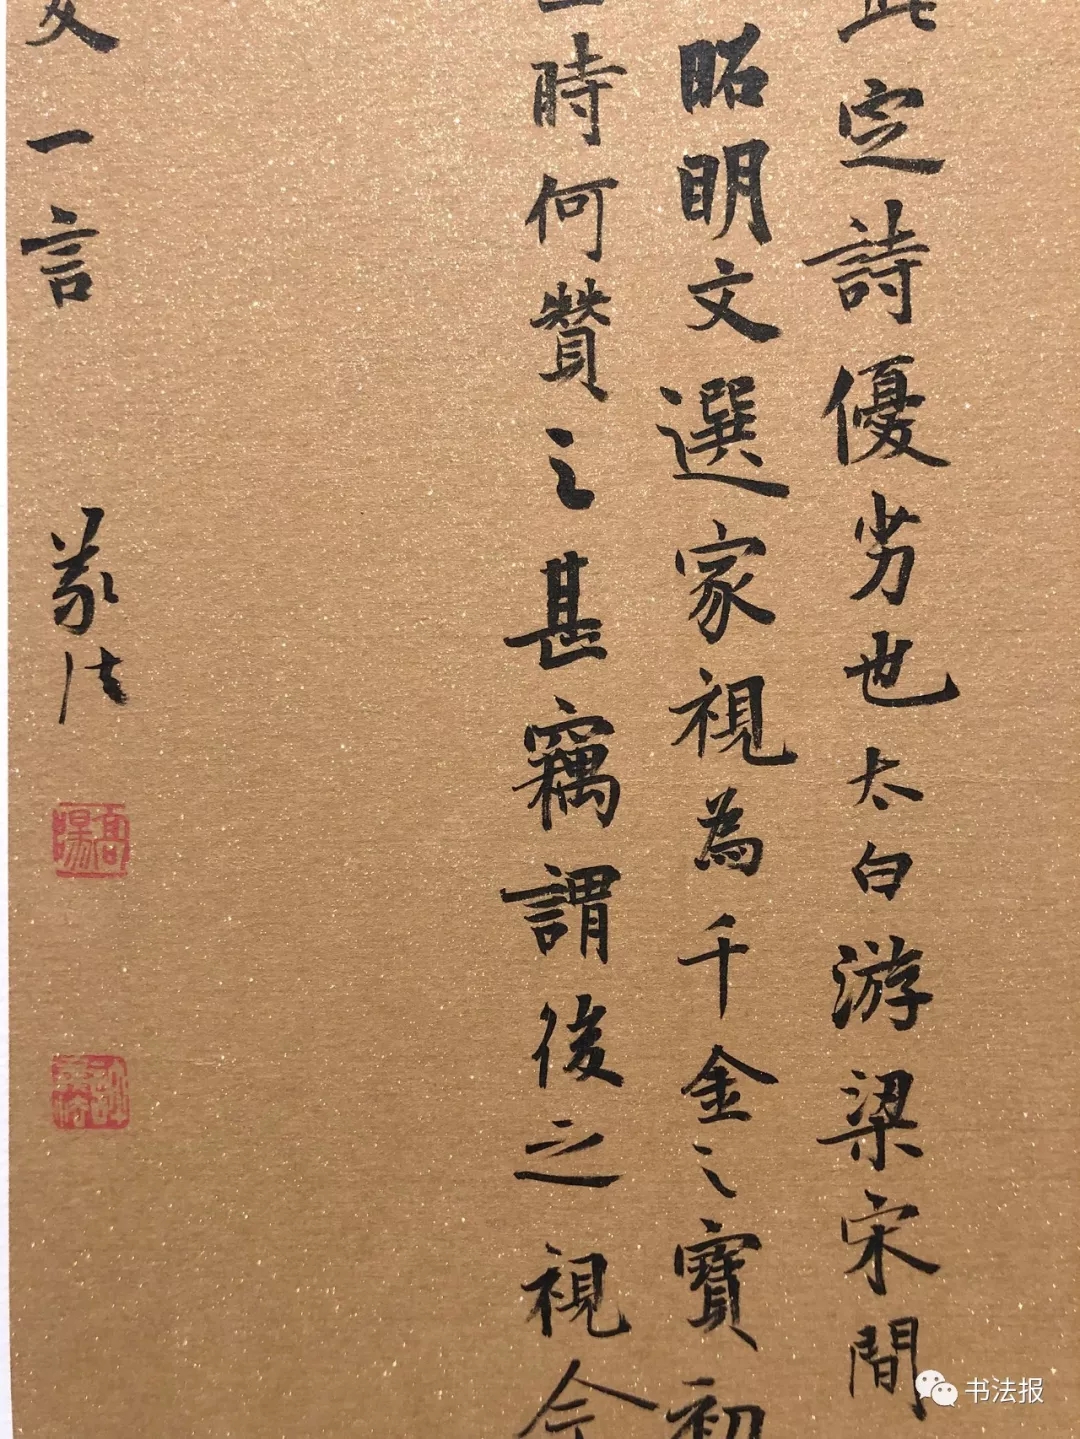 此定詩優劣也太白游梁宋間
昭明文選家視為千金之寶初
時何贊之甚竊謂後之視今
一言
义法
書法报